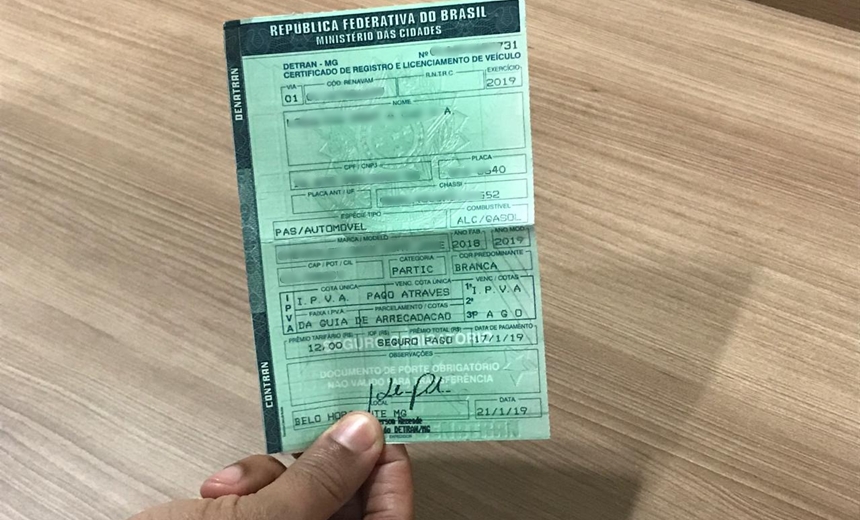 REPÚBLICA FEDERATIVA DO BRASIL
MINISTÉRIO DAS CIDADES
DETRAN - MG Nº 731
CERTIFICADO DE REGISTRO E LICENCIAMENTO DE VEÍCULO
VIA CÓD. RENAVAM R.N.T.R.C EXERCÍCIO
01 2019
NOME
A
CPF / CNPJ PLACA
640
PLACA ANT / UF CHASSI
552
ESPÉCIE TIPO COMBUSTÍVEL
PAS/AUTOMOVEL ALC/GASOL
MARCA / MODELO ANO FAB. ANO MOD
2018 2019
CAP / POT / CIL CATEGORIA COR PREDOMINANTE
PARTIC BRANCA
COTA ÚNICA VENC. COTA ÚNICA VENC / COTAS
IPVA
I.P.V.A. PAGO ATRAVES 1ª I.P.V.A
FAIXA I.P.V.A. PARCELAMENTO / COTAS 2ª
DA GUIA DE ARRECADACAO 3ª P A G O
PRÊMIO TARIFÁRIO (R$) IOF (R$) PRÊMIO TOTAL (R$) DATA DE PAGAMENTO
12,00 SEGURO PAGO 17/1/19
OBSERVAÇÕES
DOCUMENTO DE PORTE OBRIGATÓRIO
NÃO VÁLIDO PARA TRANSFERÊNCIA
LOCAL DATA
BELO MG 21/1/19
DETRAN/MG
DENATRAN
CONTRAN